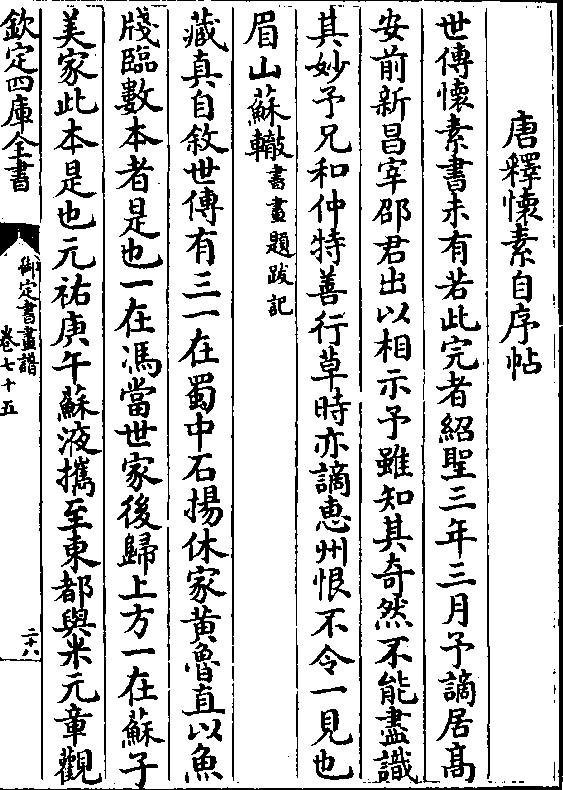 唐釋懷素自序帖
世傳懷素書未有若此完者紹聖三年三月予謫居髙
安前新昌宰邵君出以相示予雖知其奇然不能盡識
其妙予兄和仲特善行草時亦謫惠州恨不令一見也
眉山蘇轍書畫題跋記
藏真自敘世傳有三一在蜀中石揚休家黄魯直以魚
牋臨數本者是也一在馮當世家後歸上方一在蘇子
美家此本是也元祐庚午蘇液攜至東都與米元章觀
欽定四庫全書
御定書畫譜
卷七十五
二六